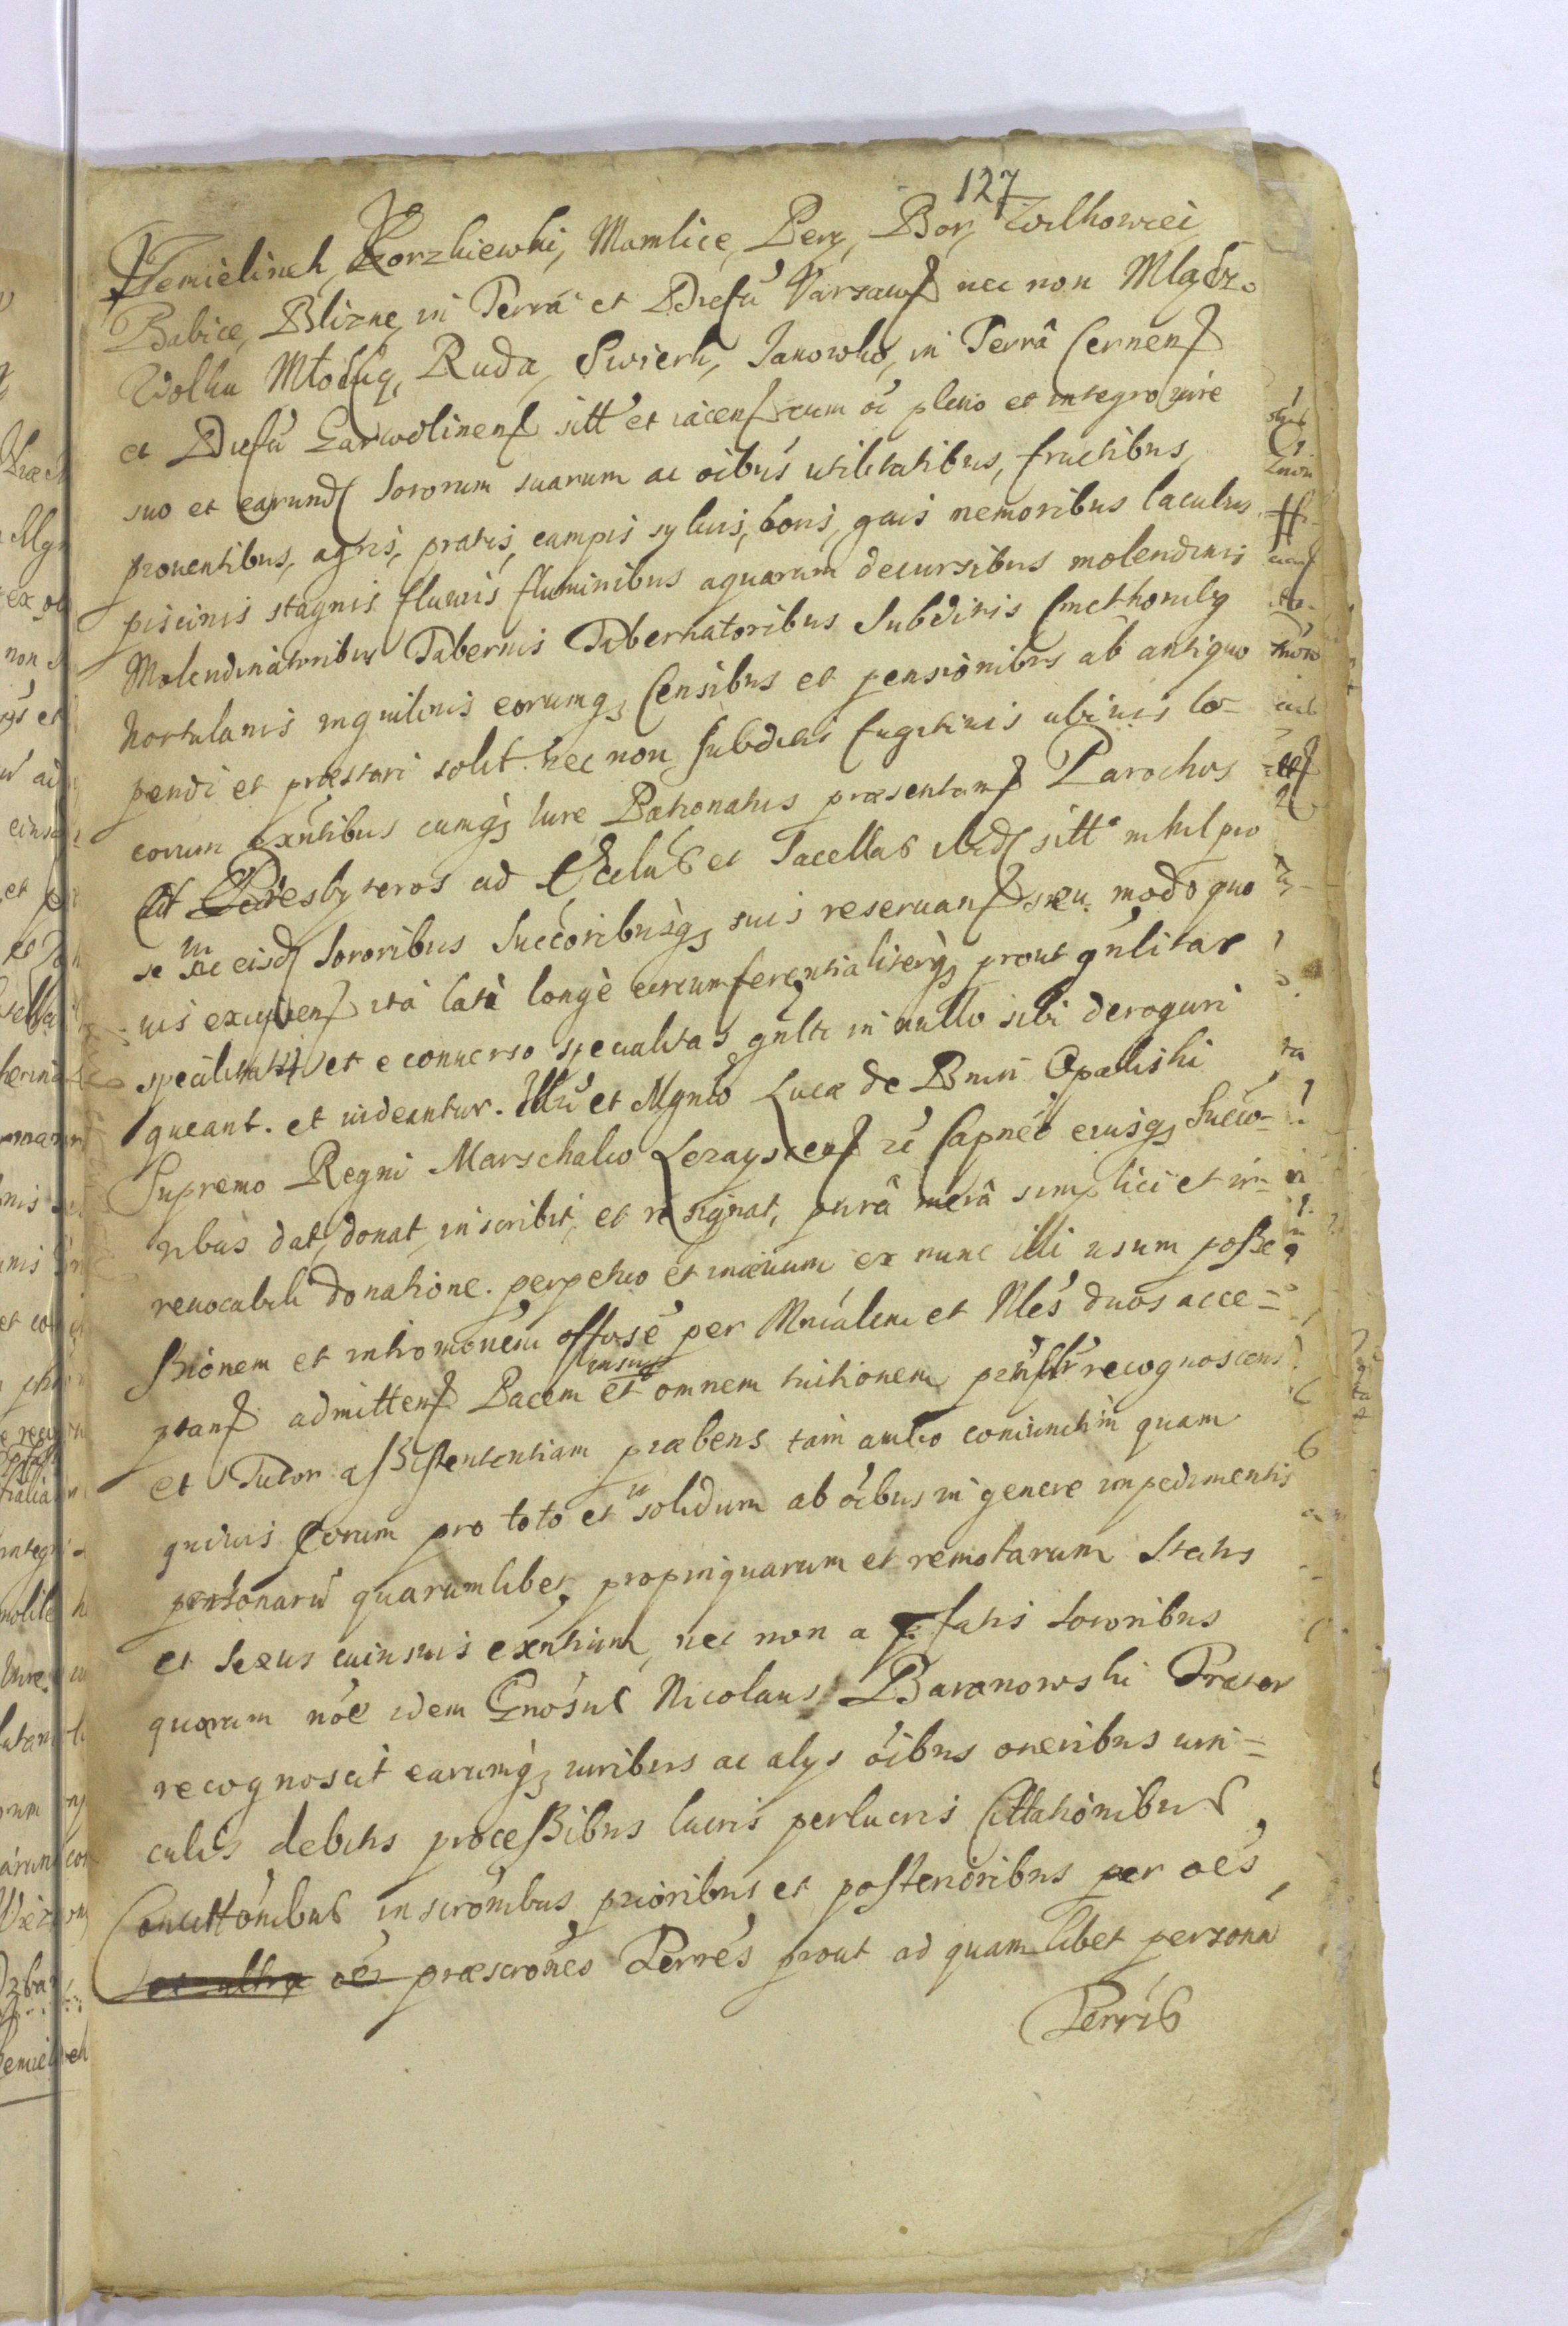 127
Chmielinek, Korzkiewki, Mamlice, Pery, Bor, Wilkowiei
Babice, Blizne, in Terrâ et Dttu Varsauien nec non Mlądz.
Wolka Mlocką, Ruda, Swierk, Janowko, in Terrâ Cernen
et Dttu Garwolinen sitt et iacen cum oi pleno et integro iure
suo et earund Sororum suarum ac oibus utilitatibus, fructibus,
prouentibus, agris, pratis, campis syluis, boris, gais nemoribus lacubus
piscinis stagnis fluuiis fluminibus aquarum decursibus molendinis
Molendinatoribus Tabernis Tabernatoribus Subditis Cmethonibq
Hortulanis inquilinis eorumq Censibus et pensionibus ab antiquo
pendi et præstari solit. nec non Subditis fugitiuis ubiuis lo-
corum exntibus cumq Iure Patronatus præsentan Parochos
et Presbyteros ad Eccla6 et Sacella6 ibid sitt nihil pro
se nec eisd Sororibus Succoribusq suis reseruan seu modo quo
uis excipien ità latè longè circumferentialiterq prout gnlitas
specialitati et e conuerso specialitas gnlti in nullo sibi derogari
queant. et uideantur. Illri et Mgnco Lucæ de Bnin Opalinski
Supremo Regni Marschalco Lezayscen rc Capneo eiusq Succo-
ribus dat, donat, inscribit, et resignat, purâ merâ simplici et ir-
reuocabili donatione. perpetuo et inæuum ex nunc illi usum posse
ssionem et intromonem offusè per Mnialem et Nles duos acce=
ptanf admitten Pacem et omnem tuitionem pnsttr recognoscens
et Tutor assistententiam præbens tam ambo coniunctim quam
quiuis eorum pro toto et in solidum ab oibus in genere impedimentis
personarũ quarumlibet, propinquarum et remotarum Status
et Sexus cuiusuis exntium, nec non a pfatis sororibus
quarum noe idem Gnosus Nicolaus Baranowski Frater
recognoscit earumq iuribus ac alys oibus oneribus uin=
culis debitis processibus lucris perlucris Cittationibus,
Concittonibus inscronibus prioribus et posterioribus per oes
et ultra oes præscrones Terres prout ad quamlibet personã
Terri6